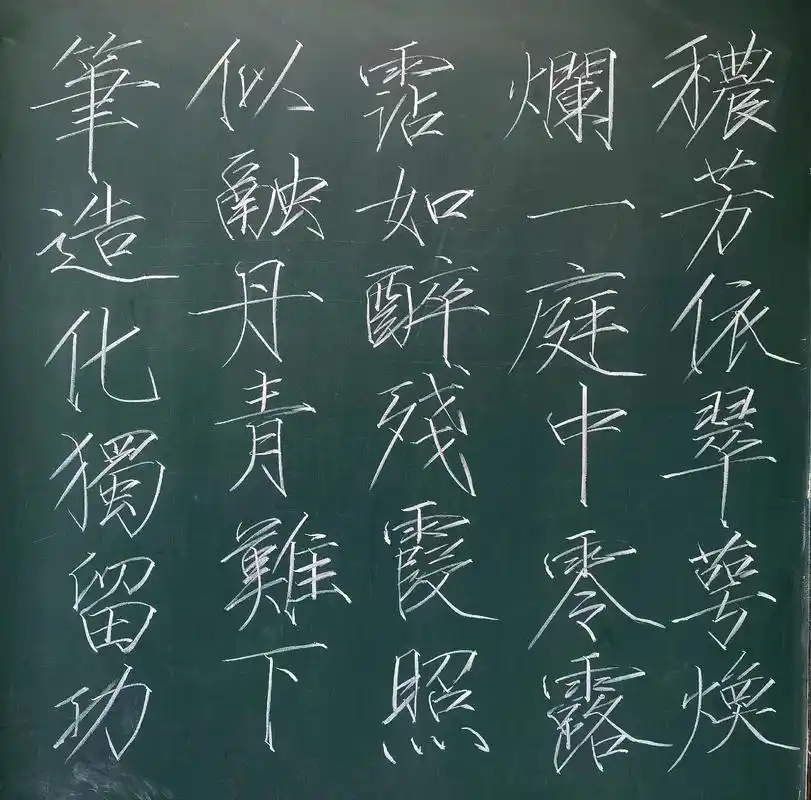 穠芳依翠萼煥
爛一庭中零露
霑如醉殘霞照
似融丹青難下
筆造化獨留功